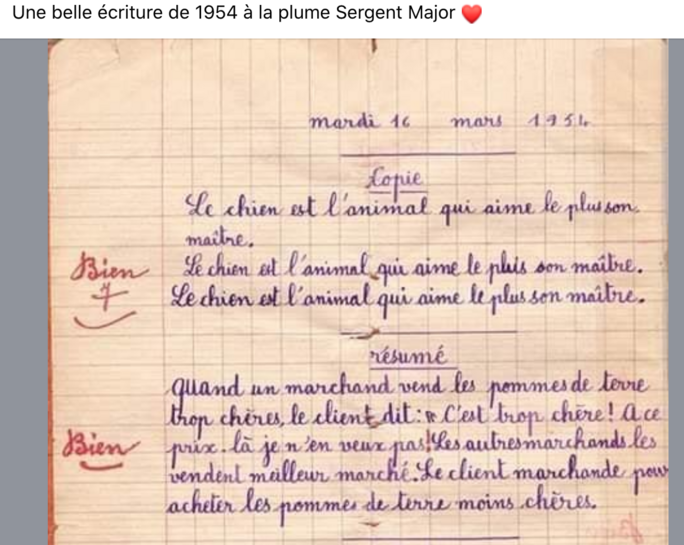 Une belle écriture de 1954 à la plume Sergent Major ❤️
mardi 16 mars 1954
Copie
Le chien est l'animal qui aime le plus son
maître.
Bien
7
Le chien est l'animal qui aime le plus son maître.
Le chien est l'animal qui aime le plus son maître.
résumé
quand un marchand vend les pommes de terre
trop chères, le client dit : « C'est trop chère ! A ce
Bien
prix-là je n'en veux pas! Les autres marchands les
vendent meilleur marché. Le client marchande pour
acheter les pommes de terre moins chères.